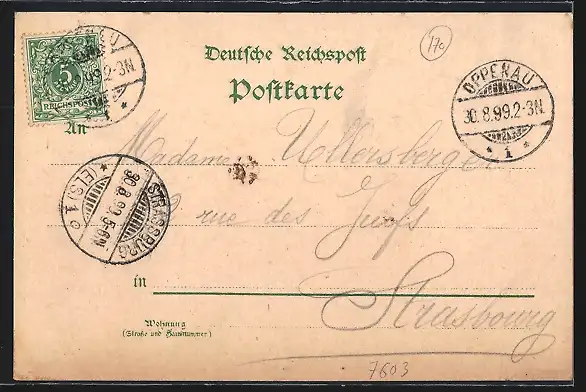 170
Deutsche Reichspost
Postkarte
5
REICHSPOST
OPPENAU
99.2-3N
1
OPPENAU
30.8.99.2-3N.
* 1 *
An
Madame Ullersberger
rue des Juifs
STRASSBURG
30.8.99.5-6N.
* (ELS) 1 o
in
Strasbourg
Wohnung
(Straße und Hausnummer)
7603